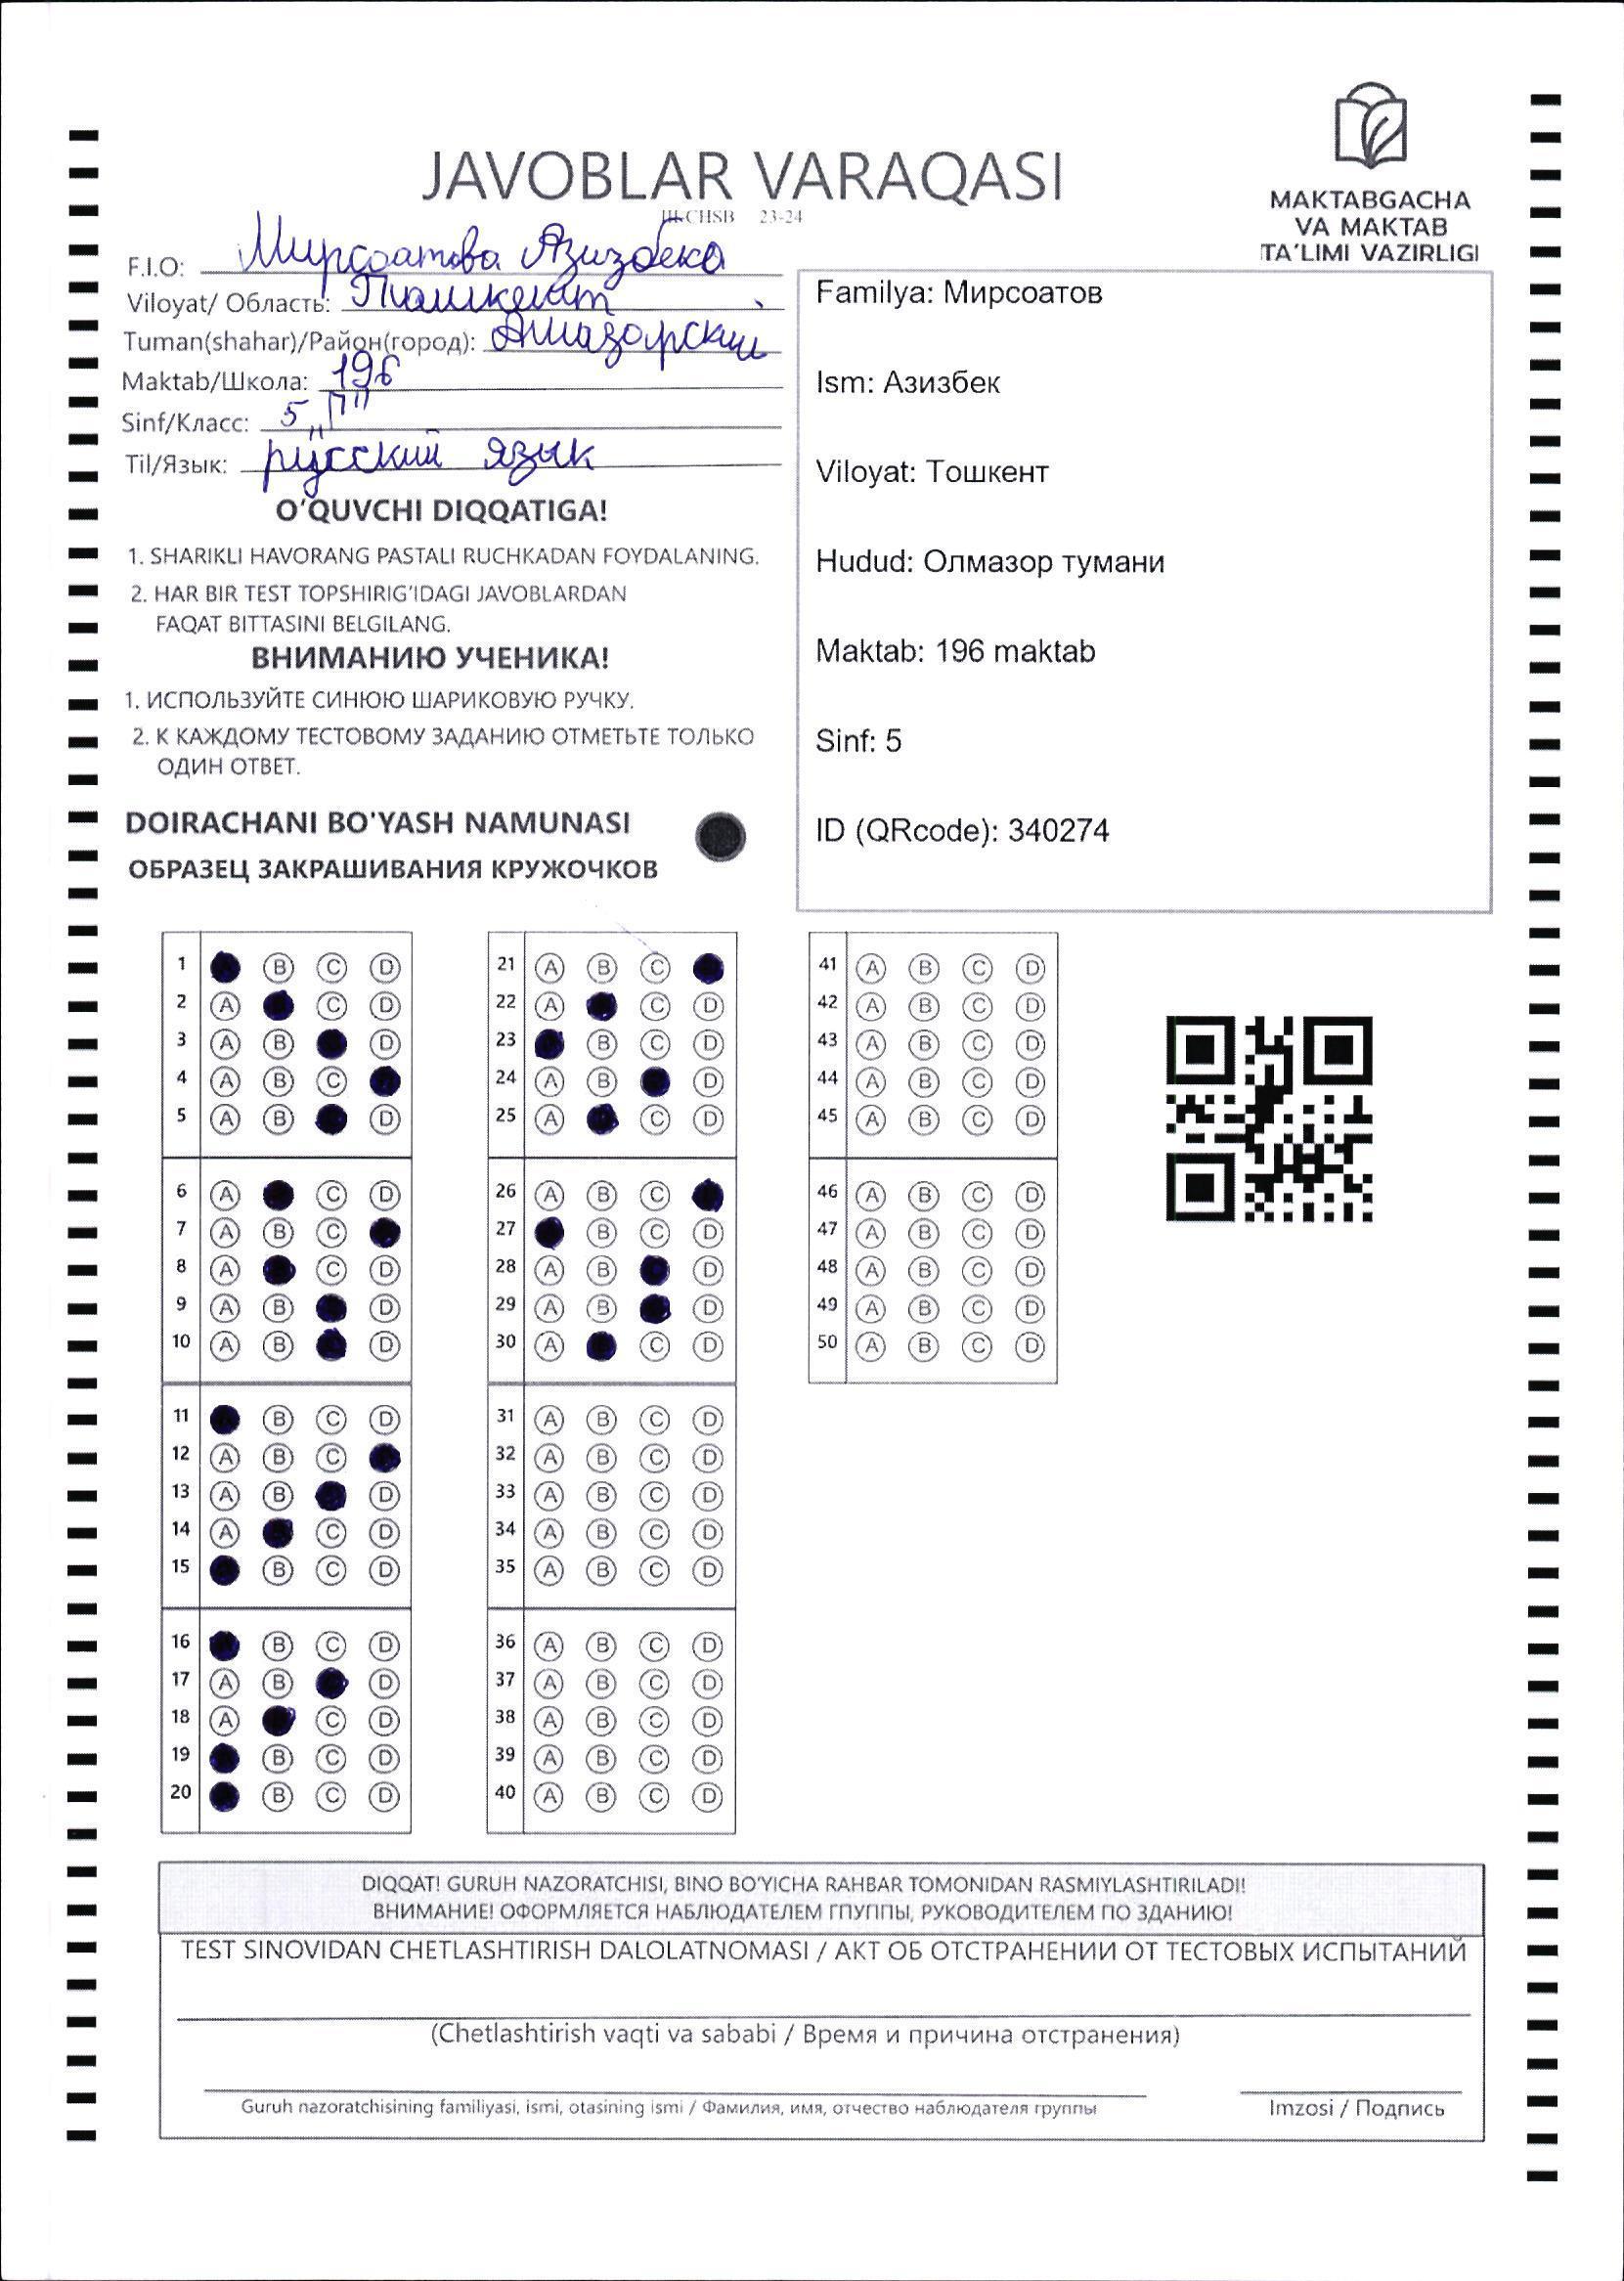 JAVOBLAR VARAQASI
CHSB 23-24
MAKTABGACHA
VA MAKTAB
TA'LIMI VAZIRLIGI
F.I.O: Мирсоатова Азизбека
Viloyat/ Область: Ташкент
Tuman(shahar)/Район(город): Алмазарский
Maktab/Школа: 196
Sinf/Класс: 5 „П"
Til/Язык: русский язык
O'QUVCHI DIQQATIGA!
1. SHARIKLI HAVORANG PASTALI RUCHKADAN FOYDALANING.
2. HAR BIR TEST TOPSHIRIG'IDAGI JAVOBLARDAN
FAQAT BITTASINI BELGILANG.
ВНИМАНИЮ УЧЕНИКА!
1. ИСПОЛЬЗУЙТЕ СИНЮЮ ШАРИКОВУЮ РУЧКУ.
2. К КАЖДОМУ ТЕСТОВОМУ ЗАДАНИЮ ОТМЕТЬТЕ ТОЛЬКО
ОДИН ОТВЕТ.
DOIRACHANI BO'YASH NAMUNASI
ОБРАЗЕЦ ЗАКРАШИВАНИЯ КРУЖОЧКОВ
Familya: Мирсоатов
Ism: Азизбек
Viloyat: Тошкент
Hudud: Олмазор тумани
Maktab: 196 maktab
Sinf: 5
ID (QRcode): 340274
1 B C D
2 A C D
3 A B D
4 A B C
5 A B D
6 A C D
7 A B C
8 A C D
9 A B D
10 A B D
11 B C D
12 A B C
13 A B D
14 A C D
15 B C D
16 B C D
17 A B D
18 A C D
19 B C D
20 B C D
21 A B C
22 A C D
23 B C D
24 A B D
25 A C D
26 A B C
27 B C D
28 A B D
29 A B D
30 A C D
31 A B C D
32 A B C D
33 A B C D
34 A B C D
35 A B C D
36 A B C D
37 A B C D
38 A B C D
39 A B C D
40 A B C D
41 A B C D
42 A B C D
43 A B C D
44 A B C D
45 A B C D
46 A B C D
47 A B C D
48 A B C D
49 A B C D
50 A B C D
DIQQAT! GURUH NAZORATCHISI, BINO BO'YICHA RAHBAR TOMONIDAN RASMIYLASHTIRILADI!
ВНИМАНИЕ! ОФОРМЛЯЕТСЯ НАБЛЮДАТЕЛЕМ ГПУППЫ, РУКОВОДИТЕЛЕМ ПО ЗДАНИЮ!
TEST SINOVIDAN CHETLASHTIRISH DALOLATNOMASI / АКТ ОБ ОТСТРАНЕНИИ ОТ ТЕСТОВЫХ ИСПЫТАНИЙ
(Chetlashtirish vaqti va sababi / Время и причина отстранения)
Guruh nazoratchisining familiyasi, ismi, otasining ismi / Фамилия, имя, отчество наблюдателя группы
Imzosi / Подпись